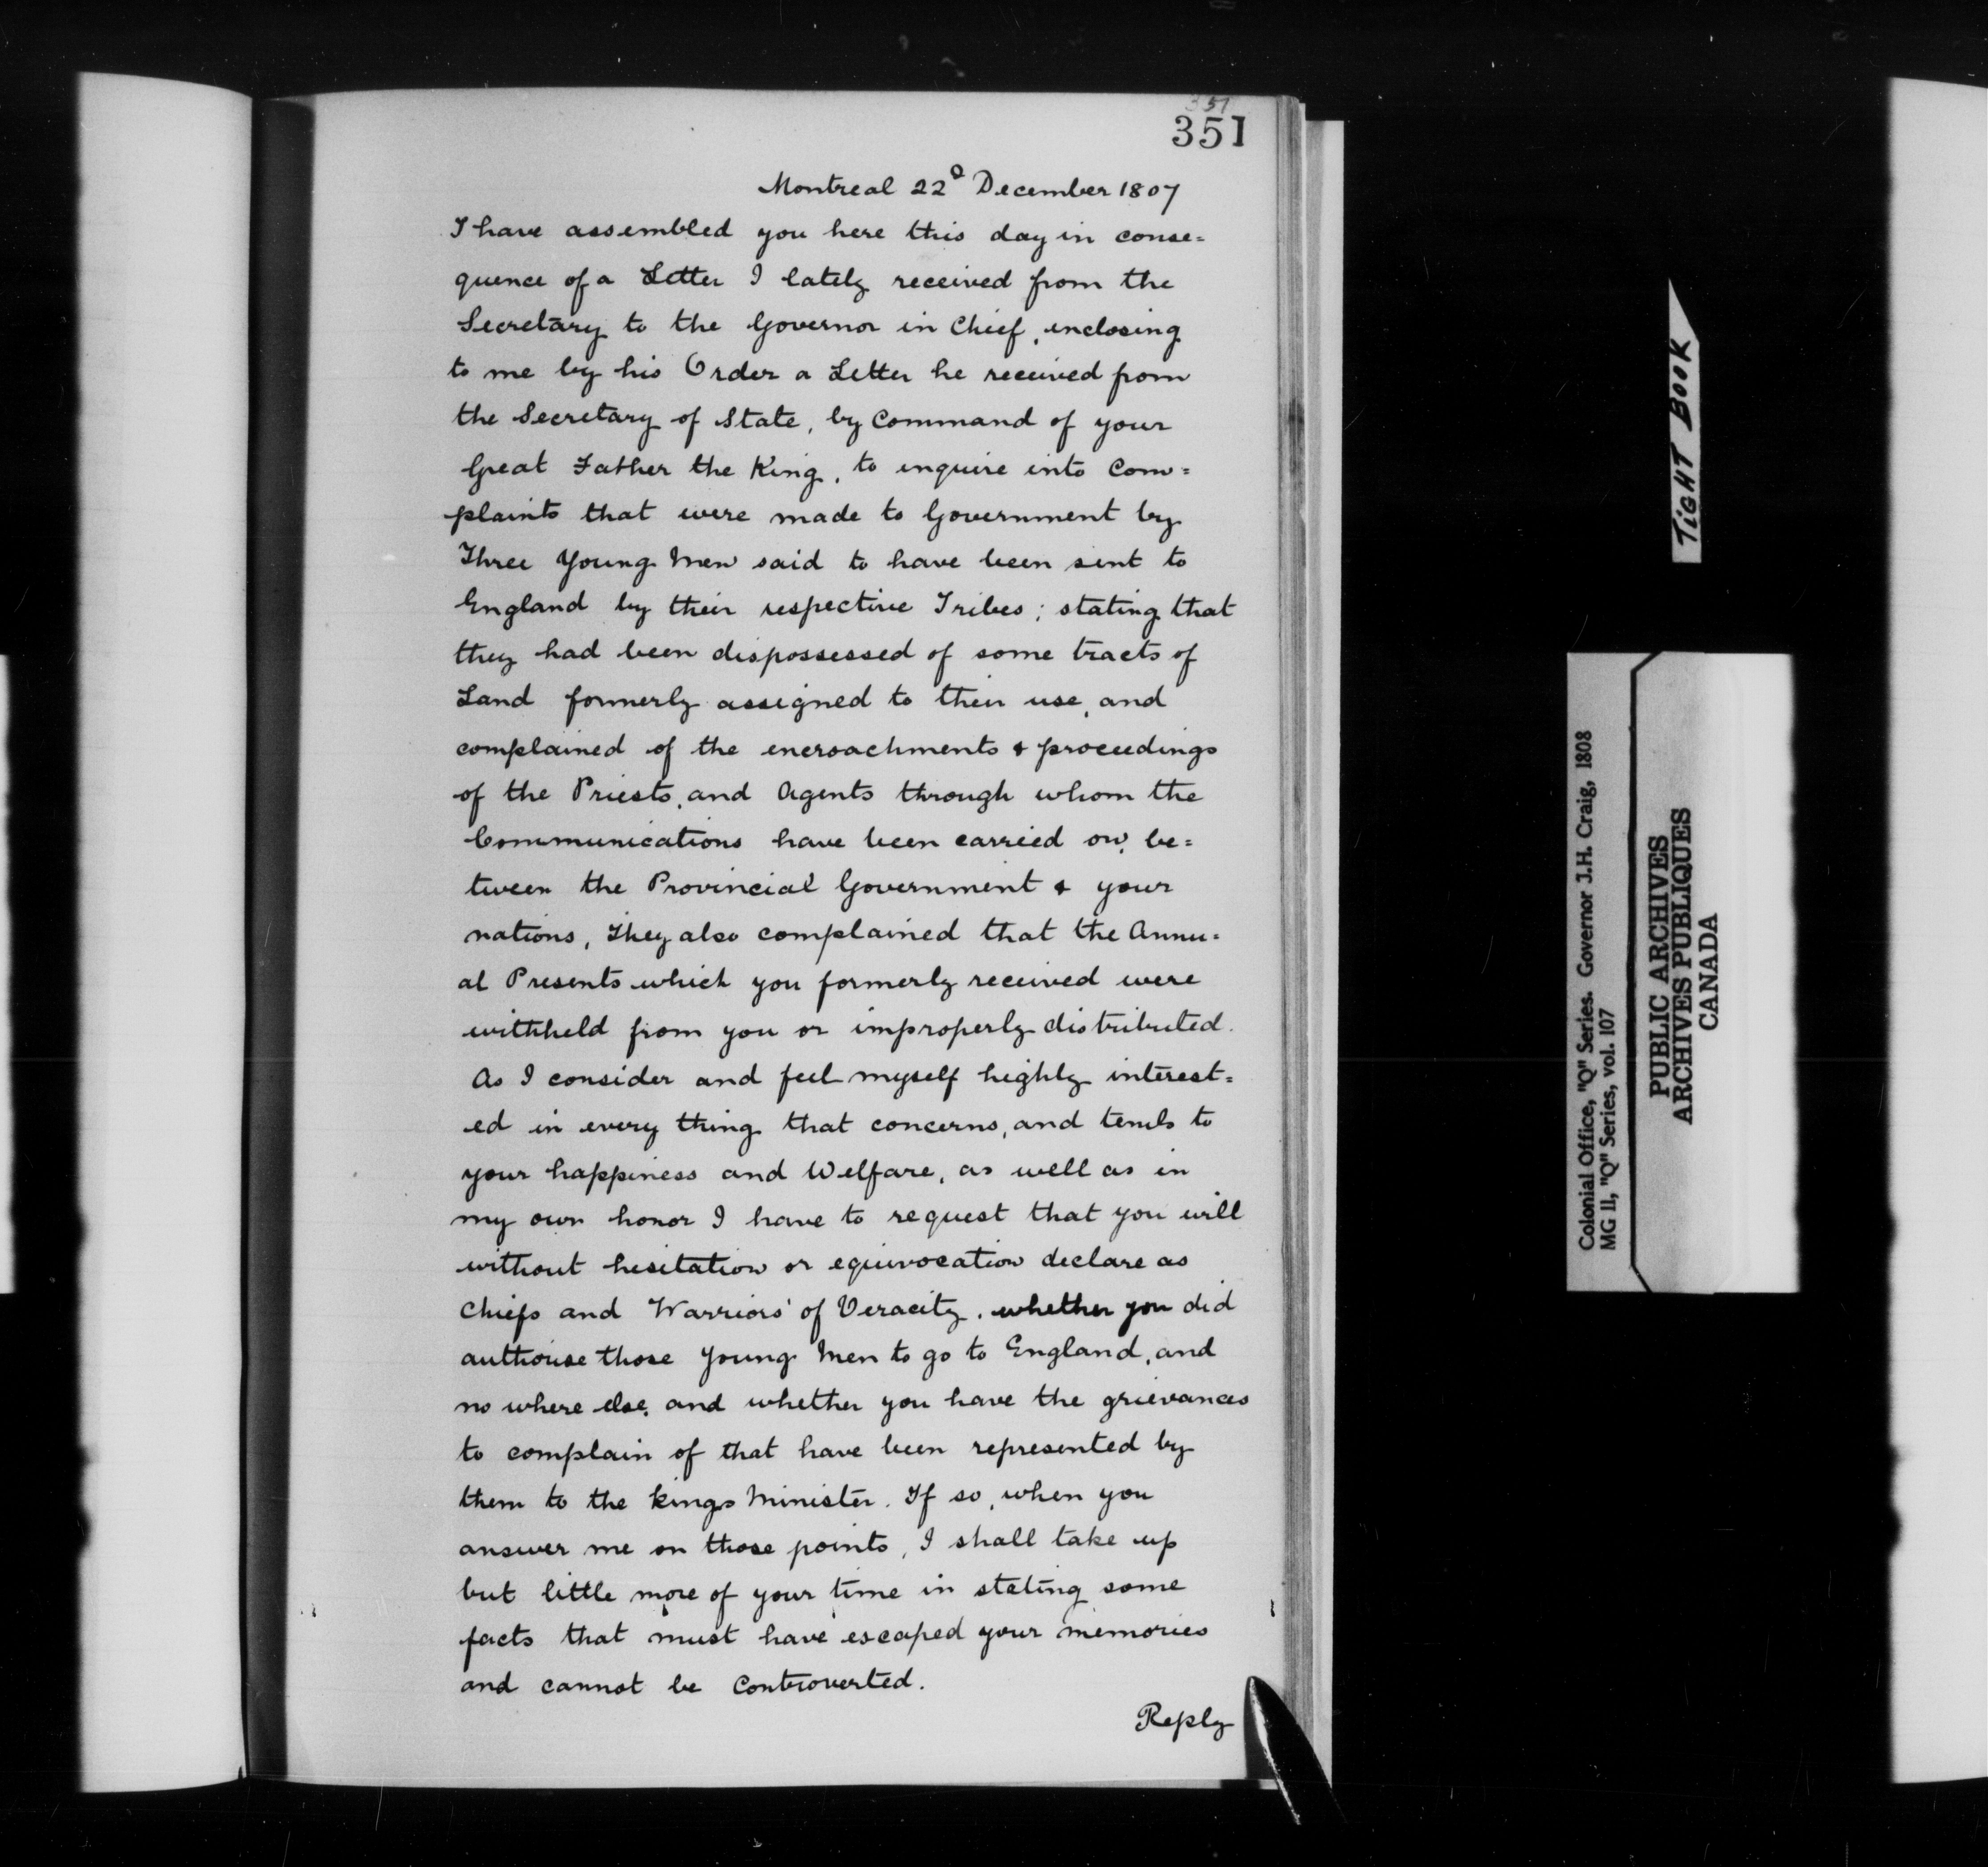 351
351
Montreal 22d December 1807
I have assembled you here this day in conse=
quence of a Letter I lately received from the
Secretary to the Governor in Chief, inclosing
to me by his Order a Letter he received from
the Secretary of State, by Command of your
Great Father the King, to inquire into Com=
plaints that were made to Government by
Three Young Men said to have been sent to
England by their respective Tribes; stating that
they had been dispossessed of some tracts of
Land formerly assigned to their use, and
complained of the encroachments & proceedings
of the Priests, and Agents through whom the
Communications have been carried on, be=
tween the Provincial Government & your
nations, They also complained that the Annu=
al Presents which you formerly received were
withheld from you or improperly distributed.
As I consider and feel myself highly interest=
ed in every thing that concerns, and tends to
your happiness and Welfare, as well as in
my own honor I have to request that you will
without hesitation or equivocation declare as
Chiefs and Warriors of Veracity, whether you did
authorise those Young Men to go to England, and
no where else, and whether you have the grievances
to complain of that have been represented by
them to the kings Minister. If so, when you
answer me on those points, I shall take up
but little more of your time in stating some
facts that must have escaped your memories
and cannot be Controverted.
Reply
TIGHT BOOK
Colonial Office, "Q" Series. Governor J.H. Craig, 1808
MG 11, "Q" Series, vol. 107
PUBLIC ARCHIVES
ARCHIVES PUBLIQUES
CANADA